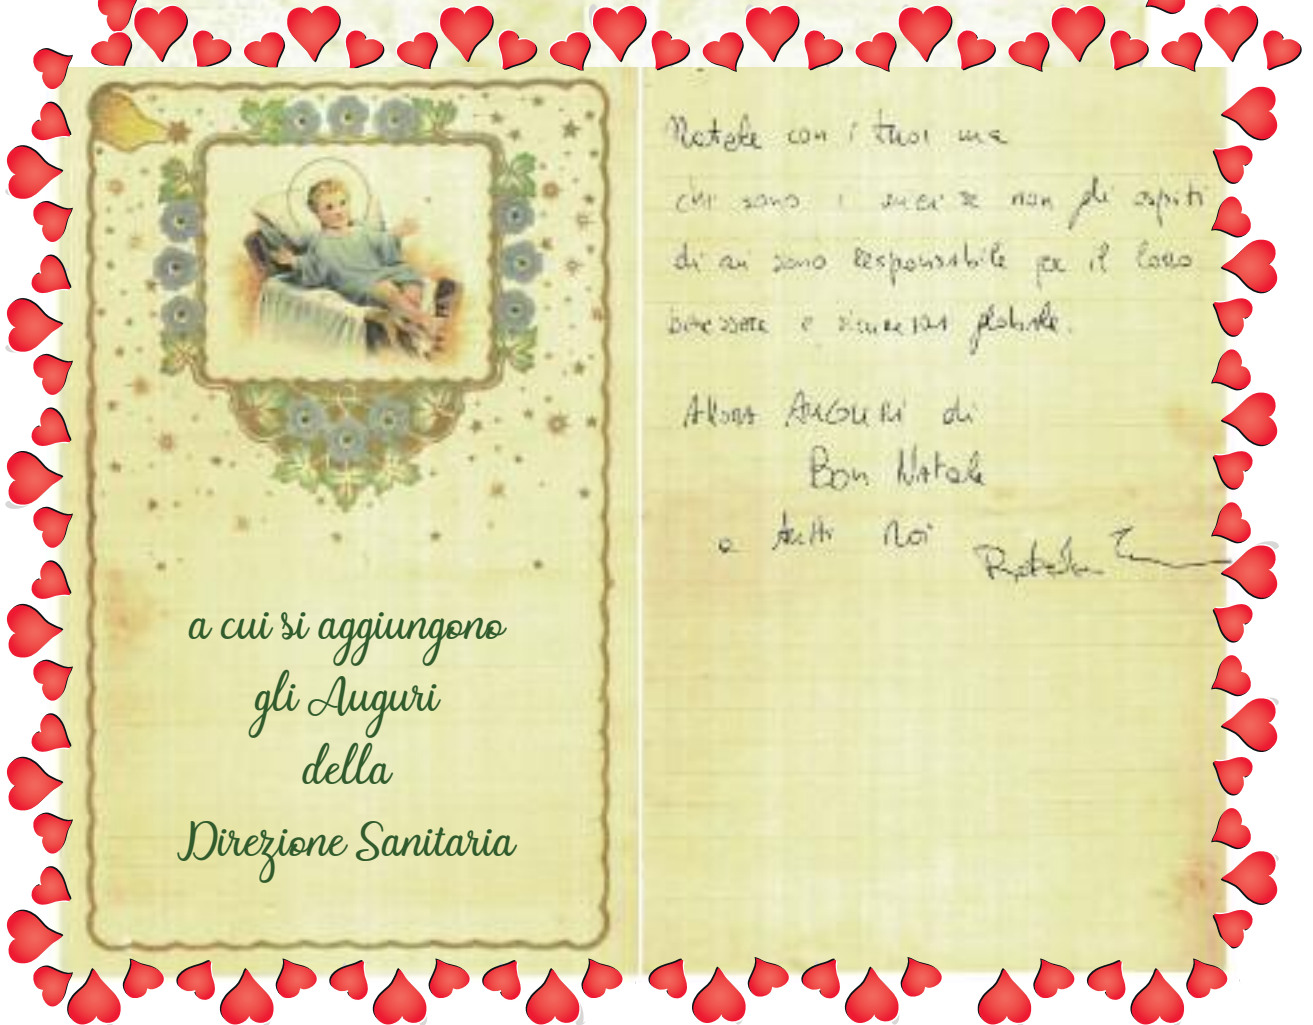 a cui si aggiungono
gli Auguri
della
Direzione Sanitaria
Natale con i tuoi ma
chi sono i miei se non gli ospiti
di cui sono responsabile per il loro
benessere e sicurezza globale.
Allora AUGURI di
Bon Natale
a tutti Noi